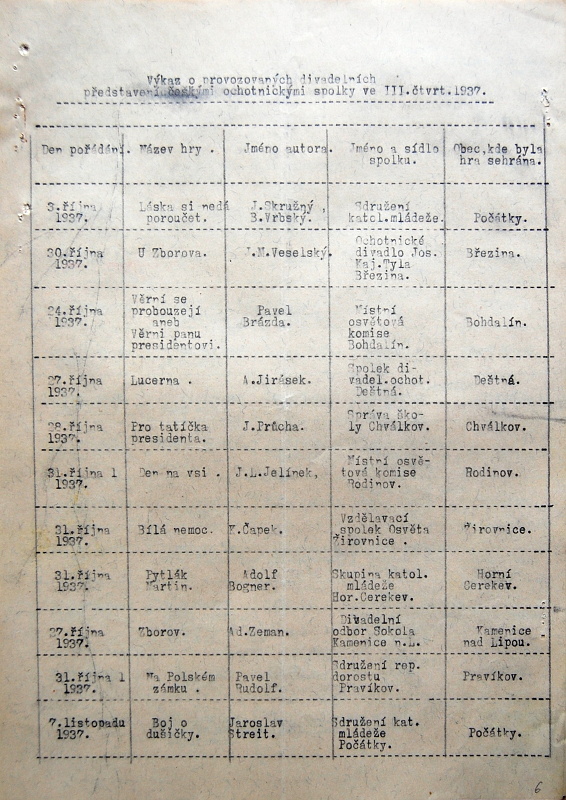 Výkaz o provozovaných divadelních
představení českými ochotnickými spolky ve III.čtvrt.1937.
Den pořádání. Název hry . Jméno autora. Jméno a sídlo spolku. Obec,kde byla hra sehrána.
3.října 1937. Láska si nedá poroučet. J.Skružný , B.Vrbský. Sdružení katol.mládeže. Počátky.
30.října 1937. U Zborova. J.M.Veselský. Ochotnické divadlo Jos. Kaj.Tyla Březina. Březina.
24.října 1937. Věrní se probouzejí aneb Věrni panu presidentovi. Pavel Brázda. Místní osvětová komise Bohdalín. Bohdalín.
27.října 1937. Lucerna . A.Jirásek. Spolek di- vadel.ochot. Deštná. Deštná.
28.října 1937. Pro tatíčka presidenta. J.Průcha. Správa ško- ly Chválkov. Chválkov.
31.října 1 1937. Den na vsi . J.L.Jelínek, Místní osvě- tová komise Rodinov. Rodinov.
31.října 1937. Bílá nemoc. K.Čapek. Vzdělavací spolek Osvěta Žirovnice . Žirovnice.
31.října 1937. Pytlák Martin. Adolf Bogner. Skupina katol. mládeže Hor.Cerekev. Horní Cerekev.
27.října 1937. Zborov. Ad.Zeman. Divadelní odbor Sokola Kamenice n.L. Kamenice nad Lipou.
31.října 1 1937. Na Polském zámku . Pavel Rudolf. Sdružení rep. dorostu Pravíkov. Pravíkov.
7.listopadu 1937. Boj o dušičky. Jaroslav Streit. Sdružení kat. mládeže Počátky. Počátky.
6